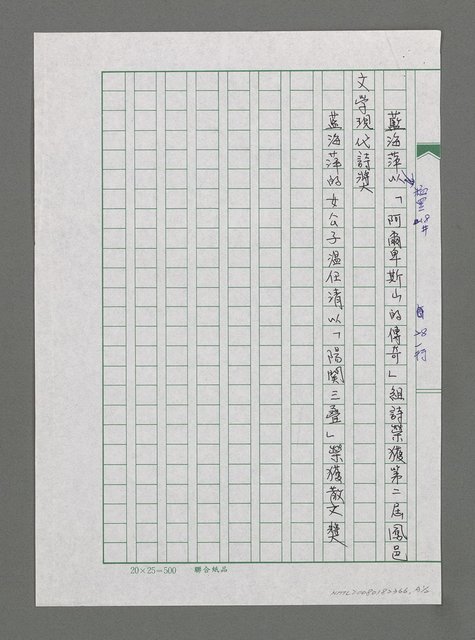 藍海萍以「阿爾卑斯山的傳奇」組詩榮獲第二屆鳳邑
文學現代詩獎
藍海萍的女公子溫任清以「陽関三疊」榮獲散文獎
20×25=500 聯合紙品